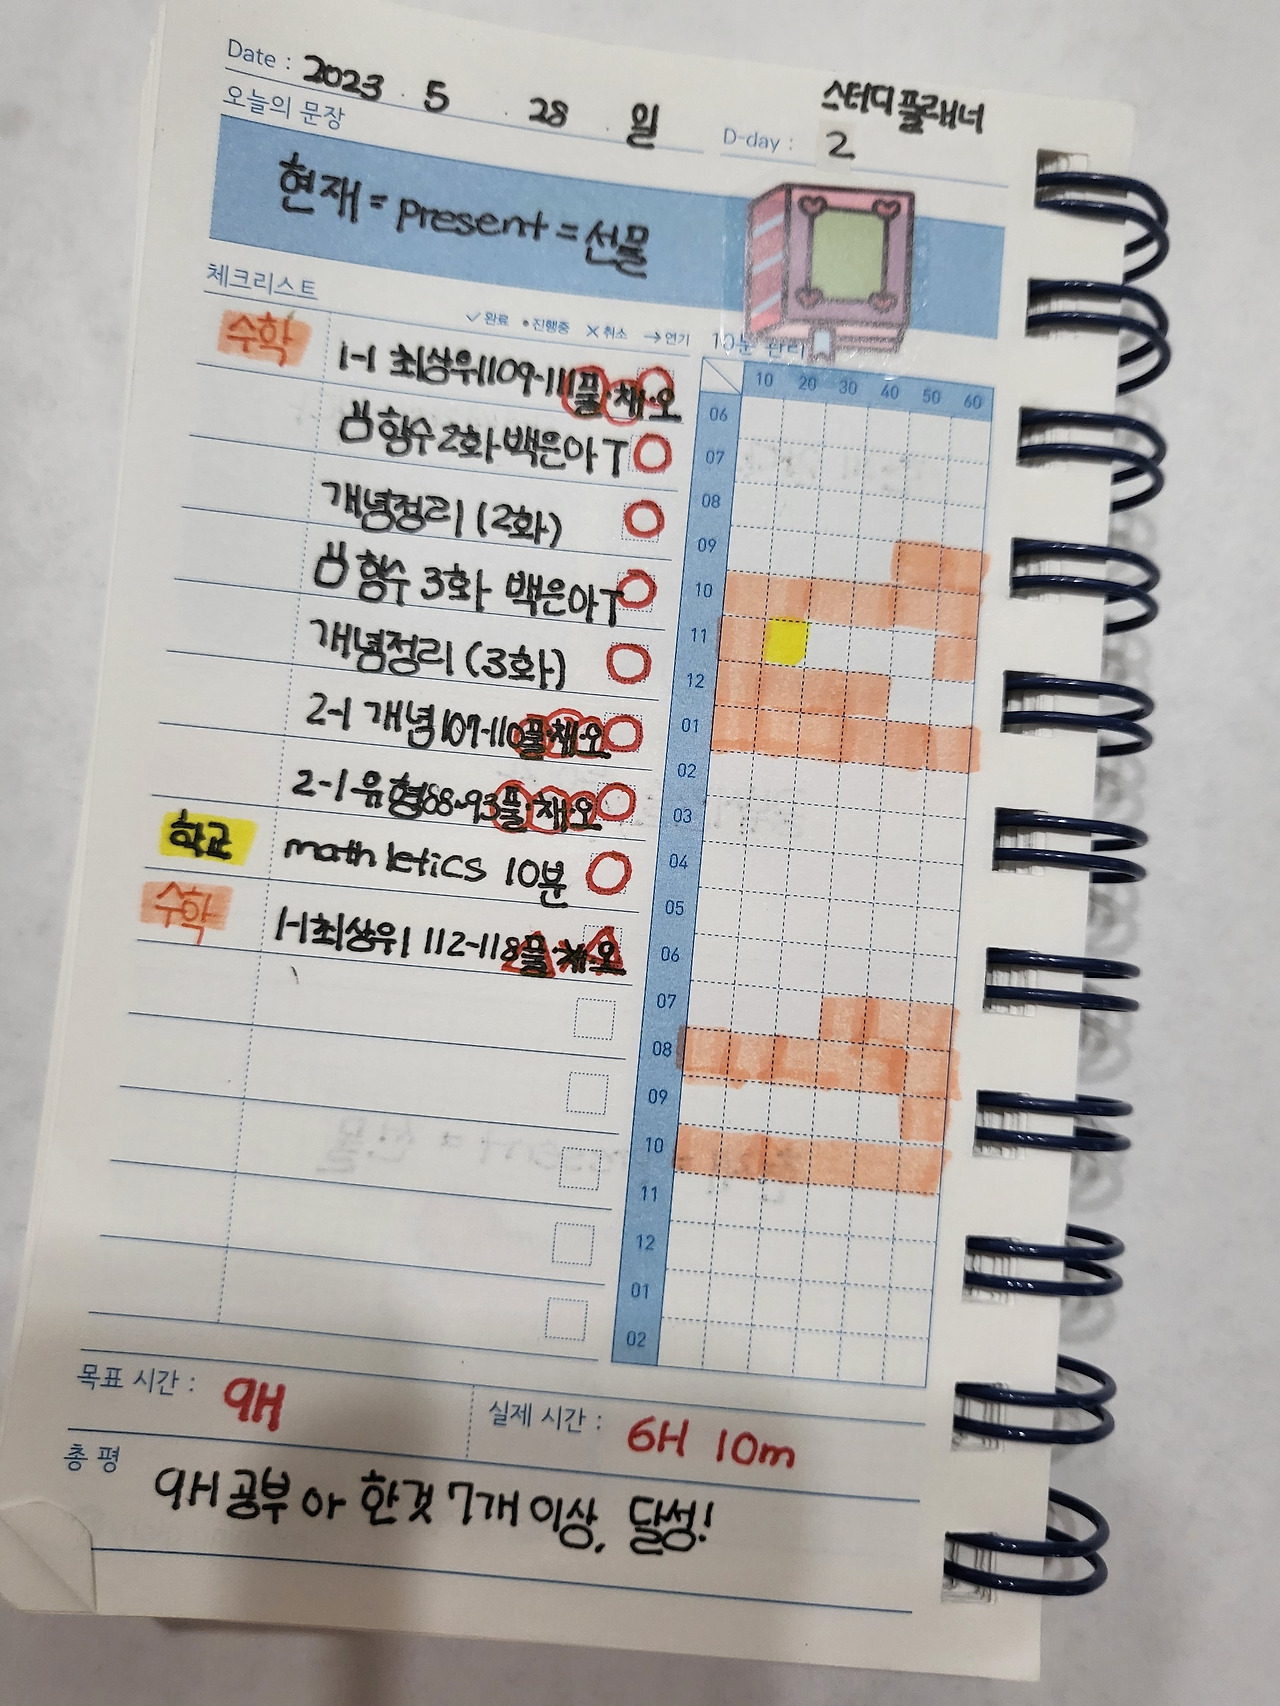 Date : 2023 . 5 . 28 . 일
스터디플래너
D-day : 2
오늘의 문장
현재 = present = 선물
체크리스트
✓완료 •진행중 ✕취소 →연기
10분 관리
수학 1-1 최상위 109-111 풀·채·오
함수 2화 백은아T
개념정리 (2화)
함수 3화 백은아T
개념정리 (3화)
2-1 개념 107-110 풀·채·오
2-1 유형 88~93 풀·채·오
학교 mathletics 10분
수학 1-1 최상위 112-118 풀·채·오
10 20 30 40 50 60
06
07
08
09
10
11
12
01
02
03
04
05
06
07
08
09
10
11
12
01
02
목표 시간 : 9H
실제 시간 : 6H 10m
총 평
9H 공부 아 한것 7개 이상, 달성!